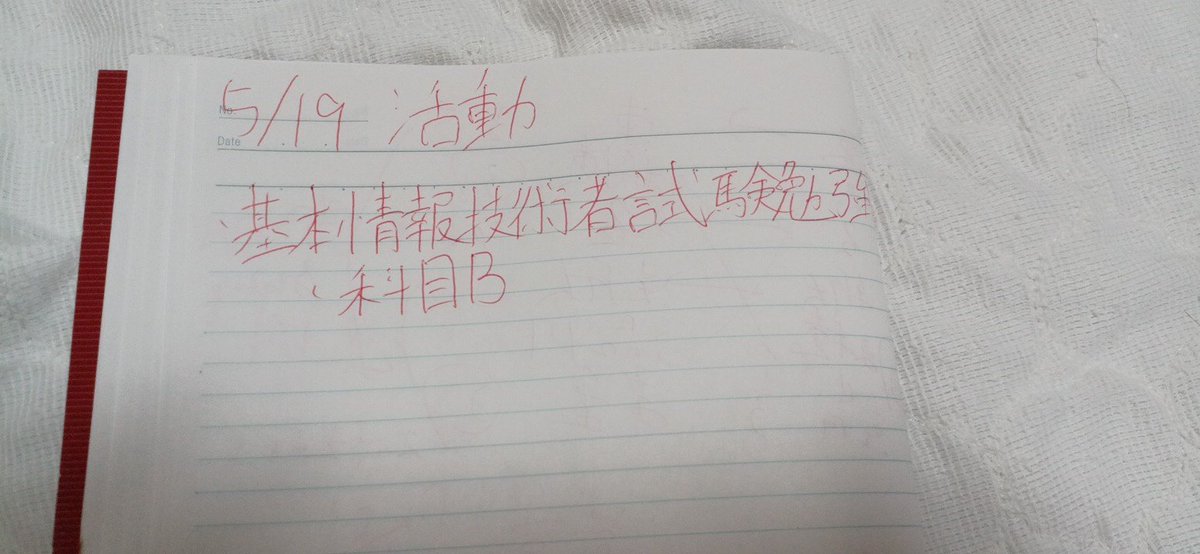 No.
5/19 活動
Date
・基本情報技術者試験勉強
・科目B